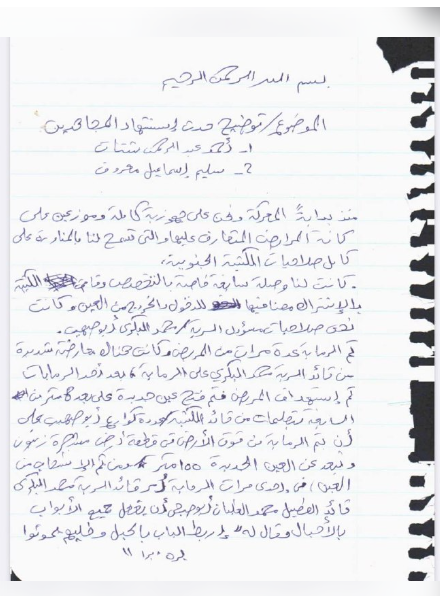 بسم الله الرحمن الرحيم
الموضوع/ توضيح حدث إستشهاد المجاهدين
1- أحمد عبد الرحمن شتات
2- سليم إسماعيل معروف
منذ بداية المعركة ونحن على جهوزية كاملة وموزعين على
كافة المرابض المتعارف عليها والتي تسمح لنا بالمناورة على
كامل صلاحيات الكتيبة الجنوبية،
كانت لنا وصلة سابقة خاصة بالتخصص وقامت الكتيبة
بالإشتراك معنا فيها للدخول والخروج من العين وكانت
تحت صلاحيات مسؤول السرية محمد البكري أبو صهيب.
تم الرماية عدة مرات من المربض وكانت هناك معارضة شديدة
من قائد السرية محمد البكري على الرماية، بعد أحد الرمايات
تم إستهداف المربض تم فتح عين جديدة على بعد 8 متر من
السابقة بتعليمات من قائد الكتيبة أبو صهيب على
أن يتم الرماية من فوق الأرض في قطعة أرض مفتوحة زيتون
وتبعد عن العين الجديدة 100 متر ومن ثم الإنسحاب من
العين، في إحدى مرات الرماية أمر قائد السرية محمد البكري
قائد الفصيل محمد أبو صبحي أن يقفل جميع الأبواب
بالأحبال وقال له "إربط الباب بالحبل وخليهم يموتوا
برا"